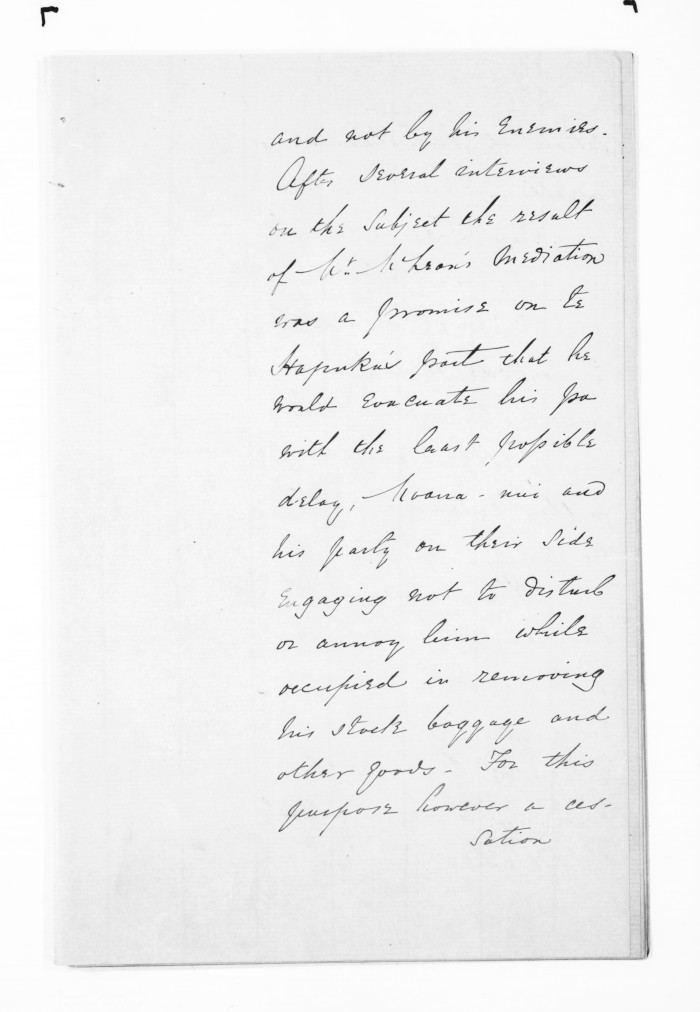 and not by his Enemies.
After several interviews
on the subject the result
of Mr. McLean's Mediation
was a promise on Te
Hapuku's part that he
would Evacuate his pa
with the least possible
delay, Moana-nui and
his party on their side
Engaging not to disturb
or annoy him while
occupied in removing
his stock baggage and
other goods. For this
purpose however a ces-
sation